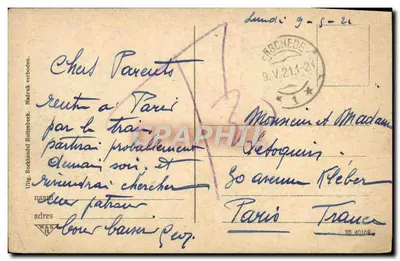 Lundi 9-5-21
ENSCHEDE
9.V.21.1-2
* 1 *
Chers Parents
rentre a Paris
par le train
partirai probablement
demain soir, et
reviendrai chercher
bon baiser
Monsieur et Madame
30 avenue Kléber
Paris France
naam
adres
Uitg. Boekhandel Nadruk verboden.
CARPHILIA